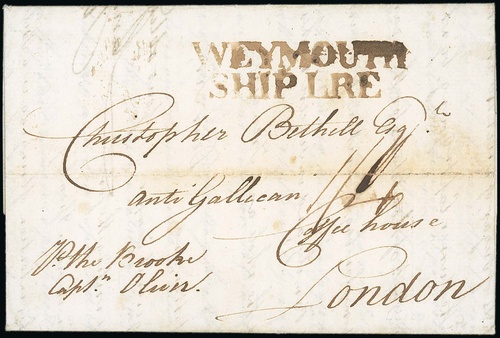 WEYMOUTH
SHIP LRE
Christopher Bethell Esqr.
anti Gallican
Coffee house
London
pr. the Brooke
Captn. Oliver.